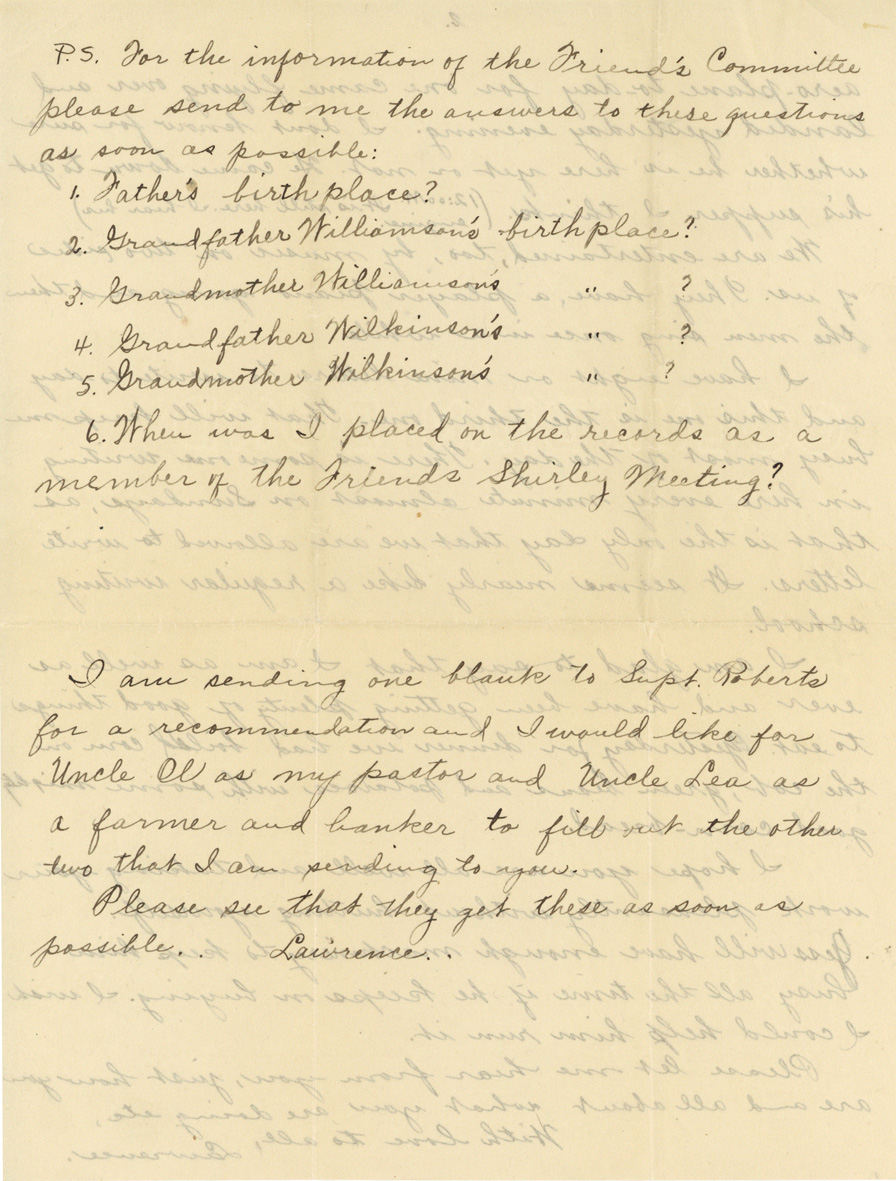 P.S. For the information of the Friend's Committee
please send to me the answers to these questions
as soon as possible:
1. Father's birthplace?
2. Grandfather Williamson's birthplace?
3. Grandmother Williamson's " ?
4. Grandfather Wilkinson's " ?
5. Grandmother Wilkinson's " ?
6. When was I placed on the records as a
member of the Friends Shirley Meeting?
I am sending one blank to Supt. Roberts
for a recommendation and I would like for
Uncle Al as my pastor and Uncle Lea as
a farmer and banker to fill out the other
two that I am sending to you.
Please see that they get these as soon as
possible. . Lawrence. .